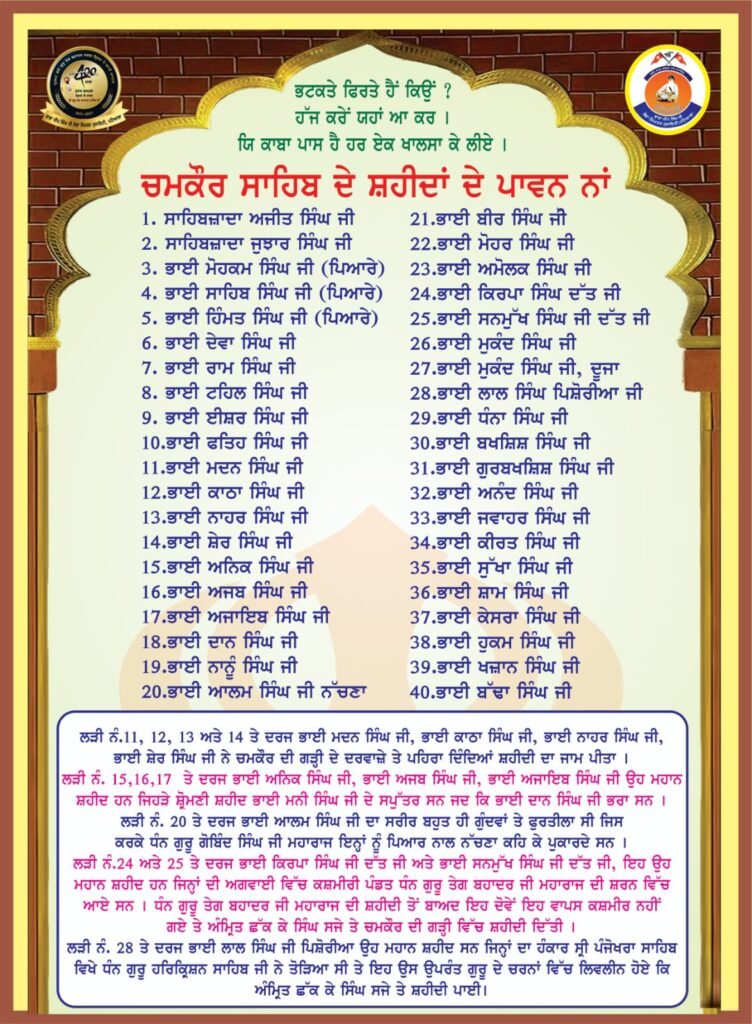 ਭਟਕਤੇ ਫਿਰਤੇ ਹੈਂ ਕਿਉਂ ?
ਹੱਜ ਕਰੇਂ ਯਹਾਂ ਆ ਕਰ ।
ਯਿ ਕਾਬਾ ਪਾਸ ਹੈ ਹਰ ਏਕ ਖਾਲਸਾ ਕੇ ਲੀਏ ।
ਚਮਕੌਰ ਸਾਹਿਬ ਦੇ ਸ਼ਹੀਦਾਂ ਦੇ ਪਾਵਨ ਨਾਂ
1. ਸਾਹਿਬਜ਼ਾਦਾ ਅਜੀਤ ਸਿੰਘ ਜੀ
2. ਸਾਹਿਬਜ਼ਾਦਾ ਜੁਝਾਰ ਸਿੰਘ ਜੀ
3. ਭਾਈ ਮੋਹਕਮ ਸਿੰਘ ਜੀ (ਪਿਆਰੇ)
4. ਭਾਈ ਸਾਹਿਬ ਸਿੰਘ ਜੀ (ਪਿਆਰੇ)
5. ਭਾਈ ਹਿੰਮਤ ਸਿੰਘ ਜੀ (ਪਿਆਰੇ)
6. ਭਾਈ ਦੇਵਾ ਸਿੰਘ ਜੀ
7. ਭਾਈ ਰਾਮ ਸਿੰਘ ਜੀ
8. ਭਾਈ ਟਹਿਲ ਸਿੰਘ ਜੀ
9. ਭਾਈ ਈਸ਼ਰ ਸਿੰਘ ਜੀ
10. ਭਾਈ ਫਤਿਹ ਸਿੰਘ ਜੀ
11. ਭਾਈ ਮਦਨ ਸਿੰਘ ਜੀ
12. ਭਾਈ ਕਾਠਾ ਸਿੰਘ ਜੀ
13. ਭਾਈ ਨਾਹਰ ਸਿੰਘ ਜੀ
14. ਭਾਈ ਸ਼ੇਰ ਸਿੰਘ ਜੀ
15. ਭਾਈ ਅਨਿਕ ਸਿੰਘ ਜੀ
16. ਭਾਈ ਅਜਬ ਸਿੰਘ ਜੀ
17. ਭਾਈ ਅਜਾਇਬ ਸਿੰਘ ਜੀ
18. ਭਾਈ ਦਾਨ ਸਿੰਘ ਜੀ
19. ਭਾਈ ਨਾਨੂੰ ਸਿੰਘ ਜੀ
20. ਭਾਈ ਆਲਮ ਸਿੰਘ ਜੀ ਨੱਚਣਾ
21.ਭਾਈ ਬੀਰ ਸਿੰਘ ਜੀ
22.ਭਾਈ ਮੋਹਰ ਸਿੰਘ ਜੀ
23.ਭਾਈ ਅਮੋਲਕ ਸਿੰਘ ਜੀ
24.ਭਾਈ ਕਿਰਪਾ ਸਿੰਘ ਦੱਤ ਜੀ
25.ਭਾਈ ਸਨਮੁੱਖ ਸਿੰਘ ਜੀ ਦੱਤ ਜੀ
26.ਭਾਈ ਮੁਕੰਦ ਸਿੰਘ ਜੀ
27.ਭਾਈ ਮੁਕੰਦ ਸਿੰਘ ਜੀ, ਦੂਜਾ
28.ਭਾਈ ਲਾਲ ਸਿੰਘ ਪਿਸ਼ੋਰੀਆ ਜੀ
29.ਭਾਈ ਧੰਨਾ ਸਿੰਘ ਜੀ
30.ਭਾਈ ਬਖਸ਼ਿਸ਼ ਸਿੰਘ ਜੀ
31.ਭਾਈ ਗੁਰਬਖਸ਼ਿਸ਼ ਸਿੰਘ ਜੀ
32.ਭਾਈ ਅਨੰਦ ਸਿੰਘ ਜੀ
33.ਭਾਈ ਜਵਾਹਰ ਸਿੰਘ ਜੀ
34.ਭਾਈ ਕੀਰਤ ਸਿੰਘ ਜੀ
35.ਭਾਈ ਸੁੱਖਾ ਸਿੰਘ ਜੀ
36.ਭਾਈ ਸ਼ਾਮ ਸਿੰਘ ਜੀ
37.ਭਾਈ ਕੇਸਰਾ ਸਿੰਘ ਜੀ
38.ਭਾਈ ਹੁਕਮ ਸਿੰਘ ਜੀ
39.ਭਾਈ ਖਜ਼ਾਨ ਸਿੰਘ ਜੀ
40.ਭਾਈ ਬੱਢਾ ਸਿੰਘ ਜੀ
ਲੜੀ ਨੰ.11, 12, 13 ਅਤੇ 14 ਤੇ ਦਰਜ ਭਾਈ ਮਦਨ ਸਿੰਘ ਜੀ, ਭਾਈ ਕਾਠਾ ਸਿੰਘ ਜੀ, ਭਾਈ ਨਾਹਰ ਸਿੰਘ ਜੀ,
ਭਾਈ ਸ਼ੇਰ ਸਿੰਘ ਜੀ ਨੇ ਚਮਕੌਰ ਦੀ ਗੜ੍ਹੀ ਦੇ ਦਰਵਾਜ਼ੇ ਤੇ ਪਹਿਰਾ ਦਿੰਦਿਆਂ ਸ਼ਹੀਦੀ ਦਾ ਜਾਮ ਪੀਤਾ ।
ਲੜੀ ਨੰ. 15,16,17 ਤੇ ਦਰਜ ਭਾਈ ਅਨਿਕ ਸਿੰਘ ਜੀ, ਭਾਈ ਅਜਬ ਸਿੰਘ ਜੀ, ਭਾਈ ਅਜਾਇਬ ਸਿੰਘ ਜੀ ਉਹ ਮਹਾਨ
ਸ਼ਹੀਦ ਹਨ ਜਿਹੜੇ ਸ਼੍ਰੋਮਣੀ ਸ਼ਹੀਦ ਭਾਈ ਮਨੀ ਸਿੰਘ ਜੀ ਦੇ ਸਪੁੱਤਰ ਸਨ ਜਦ ਕਿ ਭਾਈ ਦਾਨ ਸਿੰਘ ਜੀ ਭਰਾ ਸਨ ।
ਲੜੀ ਨੰ. 20 ਤੇ ਦਰਜ ਭਾਈ ਆਲਮ ਸਿੰਘ ਜੀ ਦਾ ਸਰੀਰ ਬਹੁਤ ਹੀ ਗੁੰਦਵਾਂ ਤੇ ਫੁਰਤੀਲਾ ਸੀ ਜਿਸ
ਕਰਕੇ ਧੰਨ ਗੁਰੂ ਗੋਬਿੰਦ ਸਿੰਘ ਜੀ ਮਹਾਰਾਜ ਇਨ੍ਹਾਂ ਨੂੰ ਪਿਆਰ ਨਾਲ ਨੱਚਣਾ ਕਹਿ ਕੇ ਪੁਕਾਰਦੇ ਸਨ ।
ਲੜੀ ਨੰ.24 ਅਤੇ 25 ਤੇ ਦਰਜ ਭਾਈ ਕਿਰਪਾ ਸਿੰਘ ਜੀ ਦੱਤ ਜੀ ਅਤੇ ਭਾਈ ਸਨਮੁੱਖ ਸਿੰਘ ਜੀ ਦੱਤ ਜੀ, ਇਹ ਉਹ
ਮਹਾਨ ਸ਼ਹੀਦ ਹਨ ਜਿਨ੍ਹਾਂ ਦੀ ਅਗਵਾਈ ਵਿੱਚ ਕਸ਼ਮੀਰੀ ਪੰਡਤ ਧੰਨ ਗੁਰੂ ਤੇਗ ਬਹਾਦਰ ਜੀ ਮਹਾਰਾਜ ਦੀ ਸ਼ਰਨ ਵਿੱਚ
ਆਏ ਸਨ । ਧੰਨ ਗੁਰੂ ਤੇਗ ਬਹਾਦਰ ਜੀ ਮਹਾਰਾਜ ਦੀ ਸ਼ਹੀਦੀ ਤੋਂ ਬਾਅਦ ਇਹ ਦੋਵੇਂ ਇਹ ਵਾਪਸ ਕਸ਼ਮੀਰ ਨਹੀਂ
ਗਏ ਤੇ ਅੰਮ੍ਰਿਤ ਛੱਕ ਕੇ ਸਿੰਘ ਸਜੇ ਤੇ ਚਮਕੌਰ ਦੀ ਗੜ੍ਹੀ ਵਿੱਚ ਸ਼ਹੀਦੀ ਦਿੱਤੀ ।
ਲੜੀ ਨੰ. 28 ਤੇ ਦਰਜ ਭਾਈ ਲਾਲ ਸਿੰਘ ਜੀ ਪਿਸ਼ੋਰੀਆ ਉਹ ਮਹਾਨ ਸ਼ਹੀਦ ਸਨ ਜਿਨ੍ਹਾਂ ਦਾ ਹੰਕਾਰ ਸ੍ਰੀ ਪੰਜੋਖਰਾ ਸਾਹਿਬ
ਵਿਖੇ ਧੰਨ ਗੁਰੂ ਹਰਿਕ੍ਰਿਸ਼ਨ ਸਾਹਿਬ ਜੀ ਨੇ ਤੋੜਿਆ ਸੀ ਤੇ ਇਹ ਉਸ ਉਪਰੰਤ ਗੁਰੂ ਦੇ ਚਰਨਾਂ ਵਿੱਚ ਲਿਵਲੀਨ ਹੋਏ ਕਿ
ਅੰਮ੍ਰਿਤ ਛੱਕ ਕੇ ਸਿੰਘ ਸਜੇ ਤੇ ਸ਼ਹੀਦੀ ਪਾਈ।